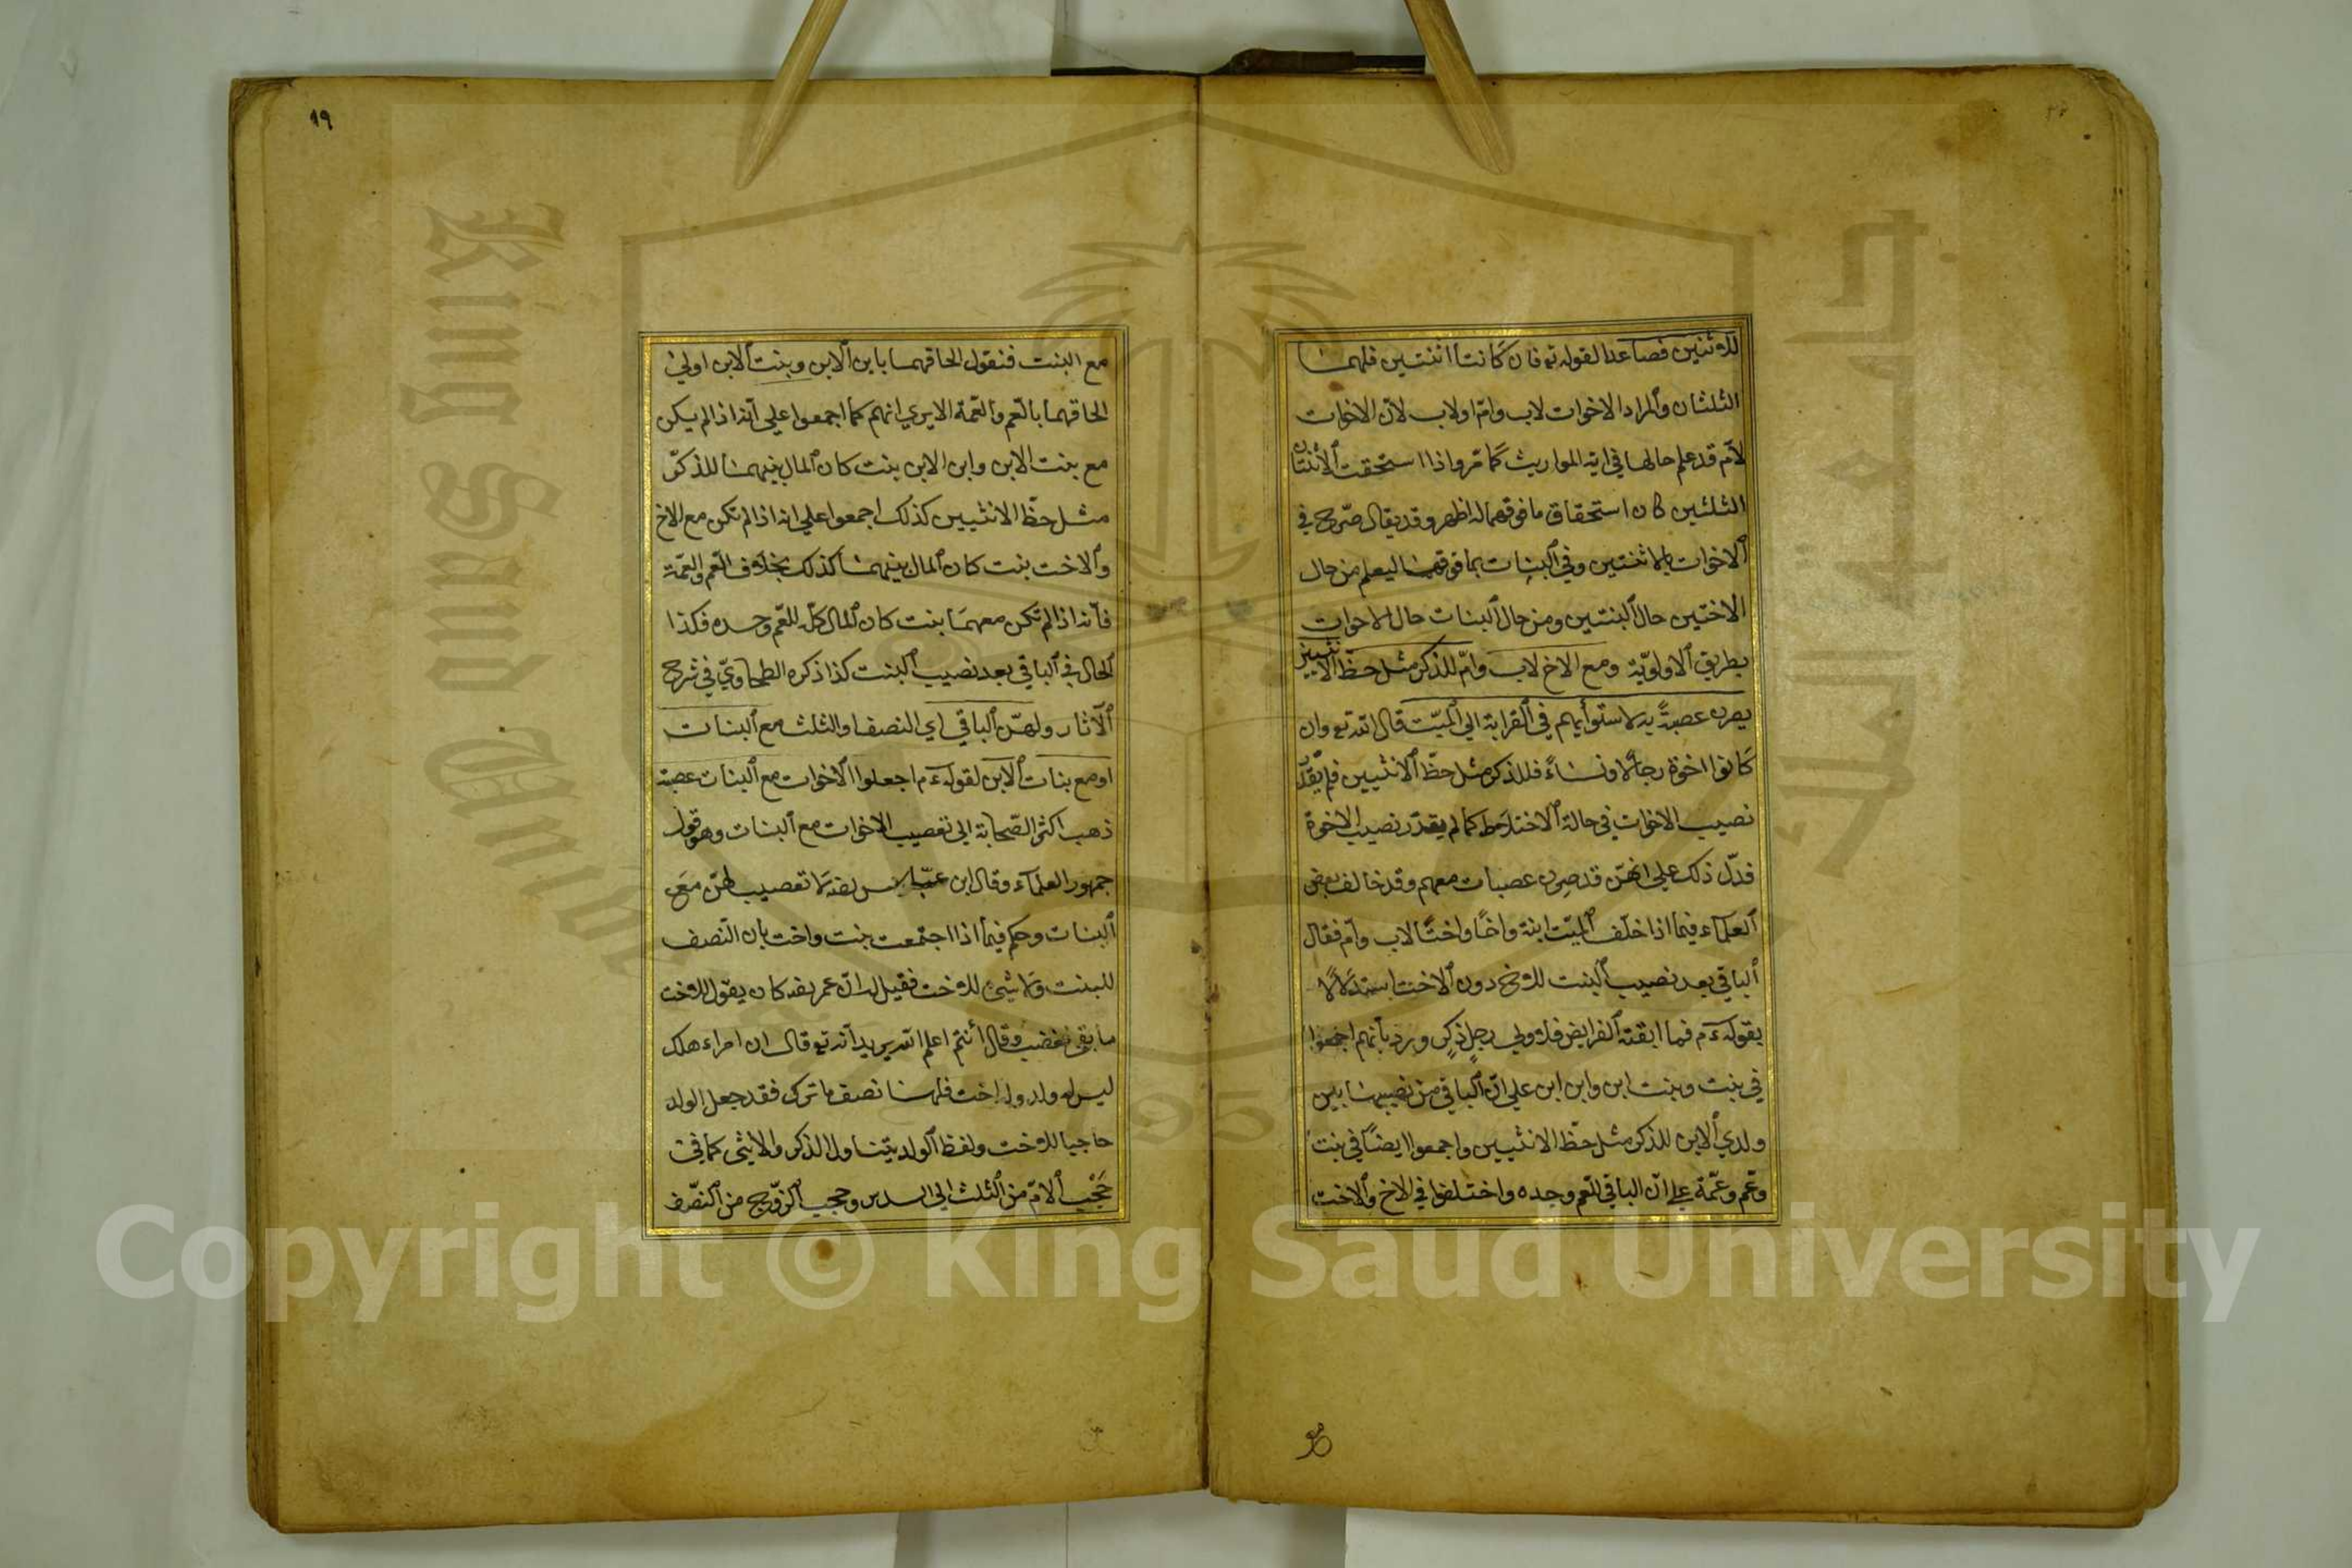 للاثنتين فصاعدا لقوله تع فان كانتا اثنتين فلهما
الثلثان والمراد الاخوات لاب وام او لاب لان الاخوات
لام قد علم حالها في اية المواريث كما مر واذا استحقت الاثنتان
الثلثين كان استحقاق ما فوقهما له اظهر وقد يقال صرح في
الاخوات بالاثنتين وفي البنات بما فوقهما ليعلم من حال
الاختين حال البنتين ومن حال البنات حال الاخوات
بطريق الاولوية ومع الاخ لاب وام للذكر مثل حظ الانثيين
يصرن عصبة به لاستوايهم في القرابة الي الميت قال الله تع وان
كانوا اخوة رجالا ونساء فللذكر مثل حظ الانثيين فلم يقدر
نصيب الاخوات في حالة الاختلاط كما لم يقدر نصيب الاخوة
فدل ذلك علي انهن قد صرن عصبات معهم وقد خالف بعض
العلماء فيما اذا خلف الميت ابنة واخا واختا لاب وام فقال
الباقي بعد نصيب البنت للاخ دون الاخت استدلالا
بقوله ءم فما ابقته الفرايض فلاولي رجل ذكر ويرد بانهم اجمعوا
في بنت وبنت ابن وابن ابن علي ان الباقي من نصيبها بين
ولدي الابن للذكر مثل حظ الانثيين واجمعوا ايضا في بنت
وعم وعمة علي ان الباقي للعم وحده واختلفوا في الاخ والاخت
١٩
مع البنت فنقول الحاقهما بابن الابن وبنت الابن اولي من
الحاقهما بالعم والعمة الا يري انهم كما اجمعوا علي انه اذا لم يكن
مع بنت الابن وابن الابن بنت كان المال بينهما للذكر
مثل حظ الانثيين كذلك اجمعوا علي انه اذا لم تكن مع الاخ
والاخت بنت كان المال بينهما كذلك بخلاف العم والعمة
فانه اذا لم تكن معهما بنت كان المال كله للعم وحده فكذا
الحال في الباقي بعد نصيب البنت كذا ذكره الطحاوي في شرح
الآثار ولهن الباقي اي النصف او الثلث مع البنات
او مع بنات الابن لقوله ءم اجعلوا الاخوات مع البنات عصبة
ذهب اكثر الصحابة الي تعصيب الاخوات مع البنات وهو قول
جمهور العلماء وقال ابن عباس رضه لا تعصيب لهن مع
البنات وحكم فيما اذا اجتمعت بنت واخت بان النصف
للبنت ولا شيئ للاخت فقيل له ان عمر رضه كان يقول للاخت
ما بقي فغضب وقال أنتم اعلم ام الله يريد انه تع قال ان امرء هلك
ليس له ولد وله اخت فلها نصف ما ترك فقد جعل الولد
حاجبا للاخت ولفظ الولد يتناول الذكر والانثي كما في
حجب الام من الثلث الي السدس وحجب الزوج من النصف
Copyright © King Saud University